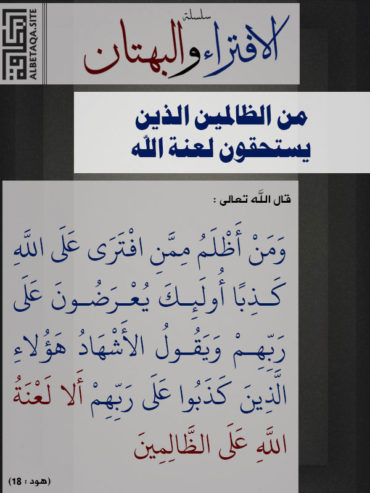 البطاقة
ALBETAQA.SITE
سلسلة
الافتراء والبهتان
من الظالمين الذين
يستحقون لعنة الله
قال الله تعالى :
وَمَنْ أَظْلَمُ مِمَّنِ افْتَرَى عَلَى اللَّهِ
كَذِبًا أُولَئِكَ يُعْرَضُونَ عَلَى
رَبِّهِمْ وَيَقُولُ الأَشْهَادُ هَؤُلاءِ
الَّذِينَ كَذَبُوا عَلَى رَبِّهِمْ أَلا لَعْنَةُ
اللَّهِ عَلَى الظَّالِمِينَ
(هود : 18)